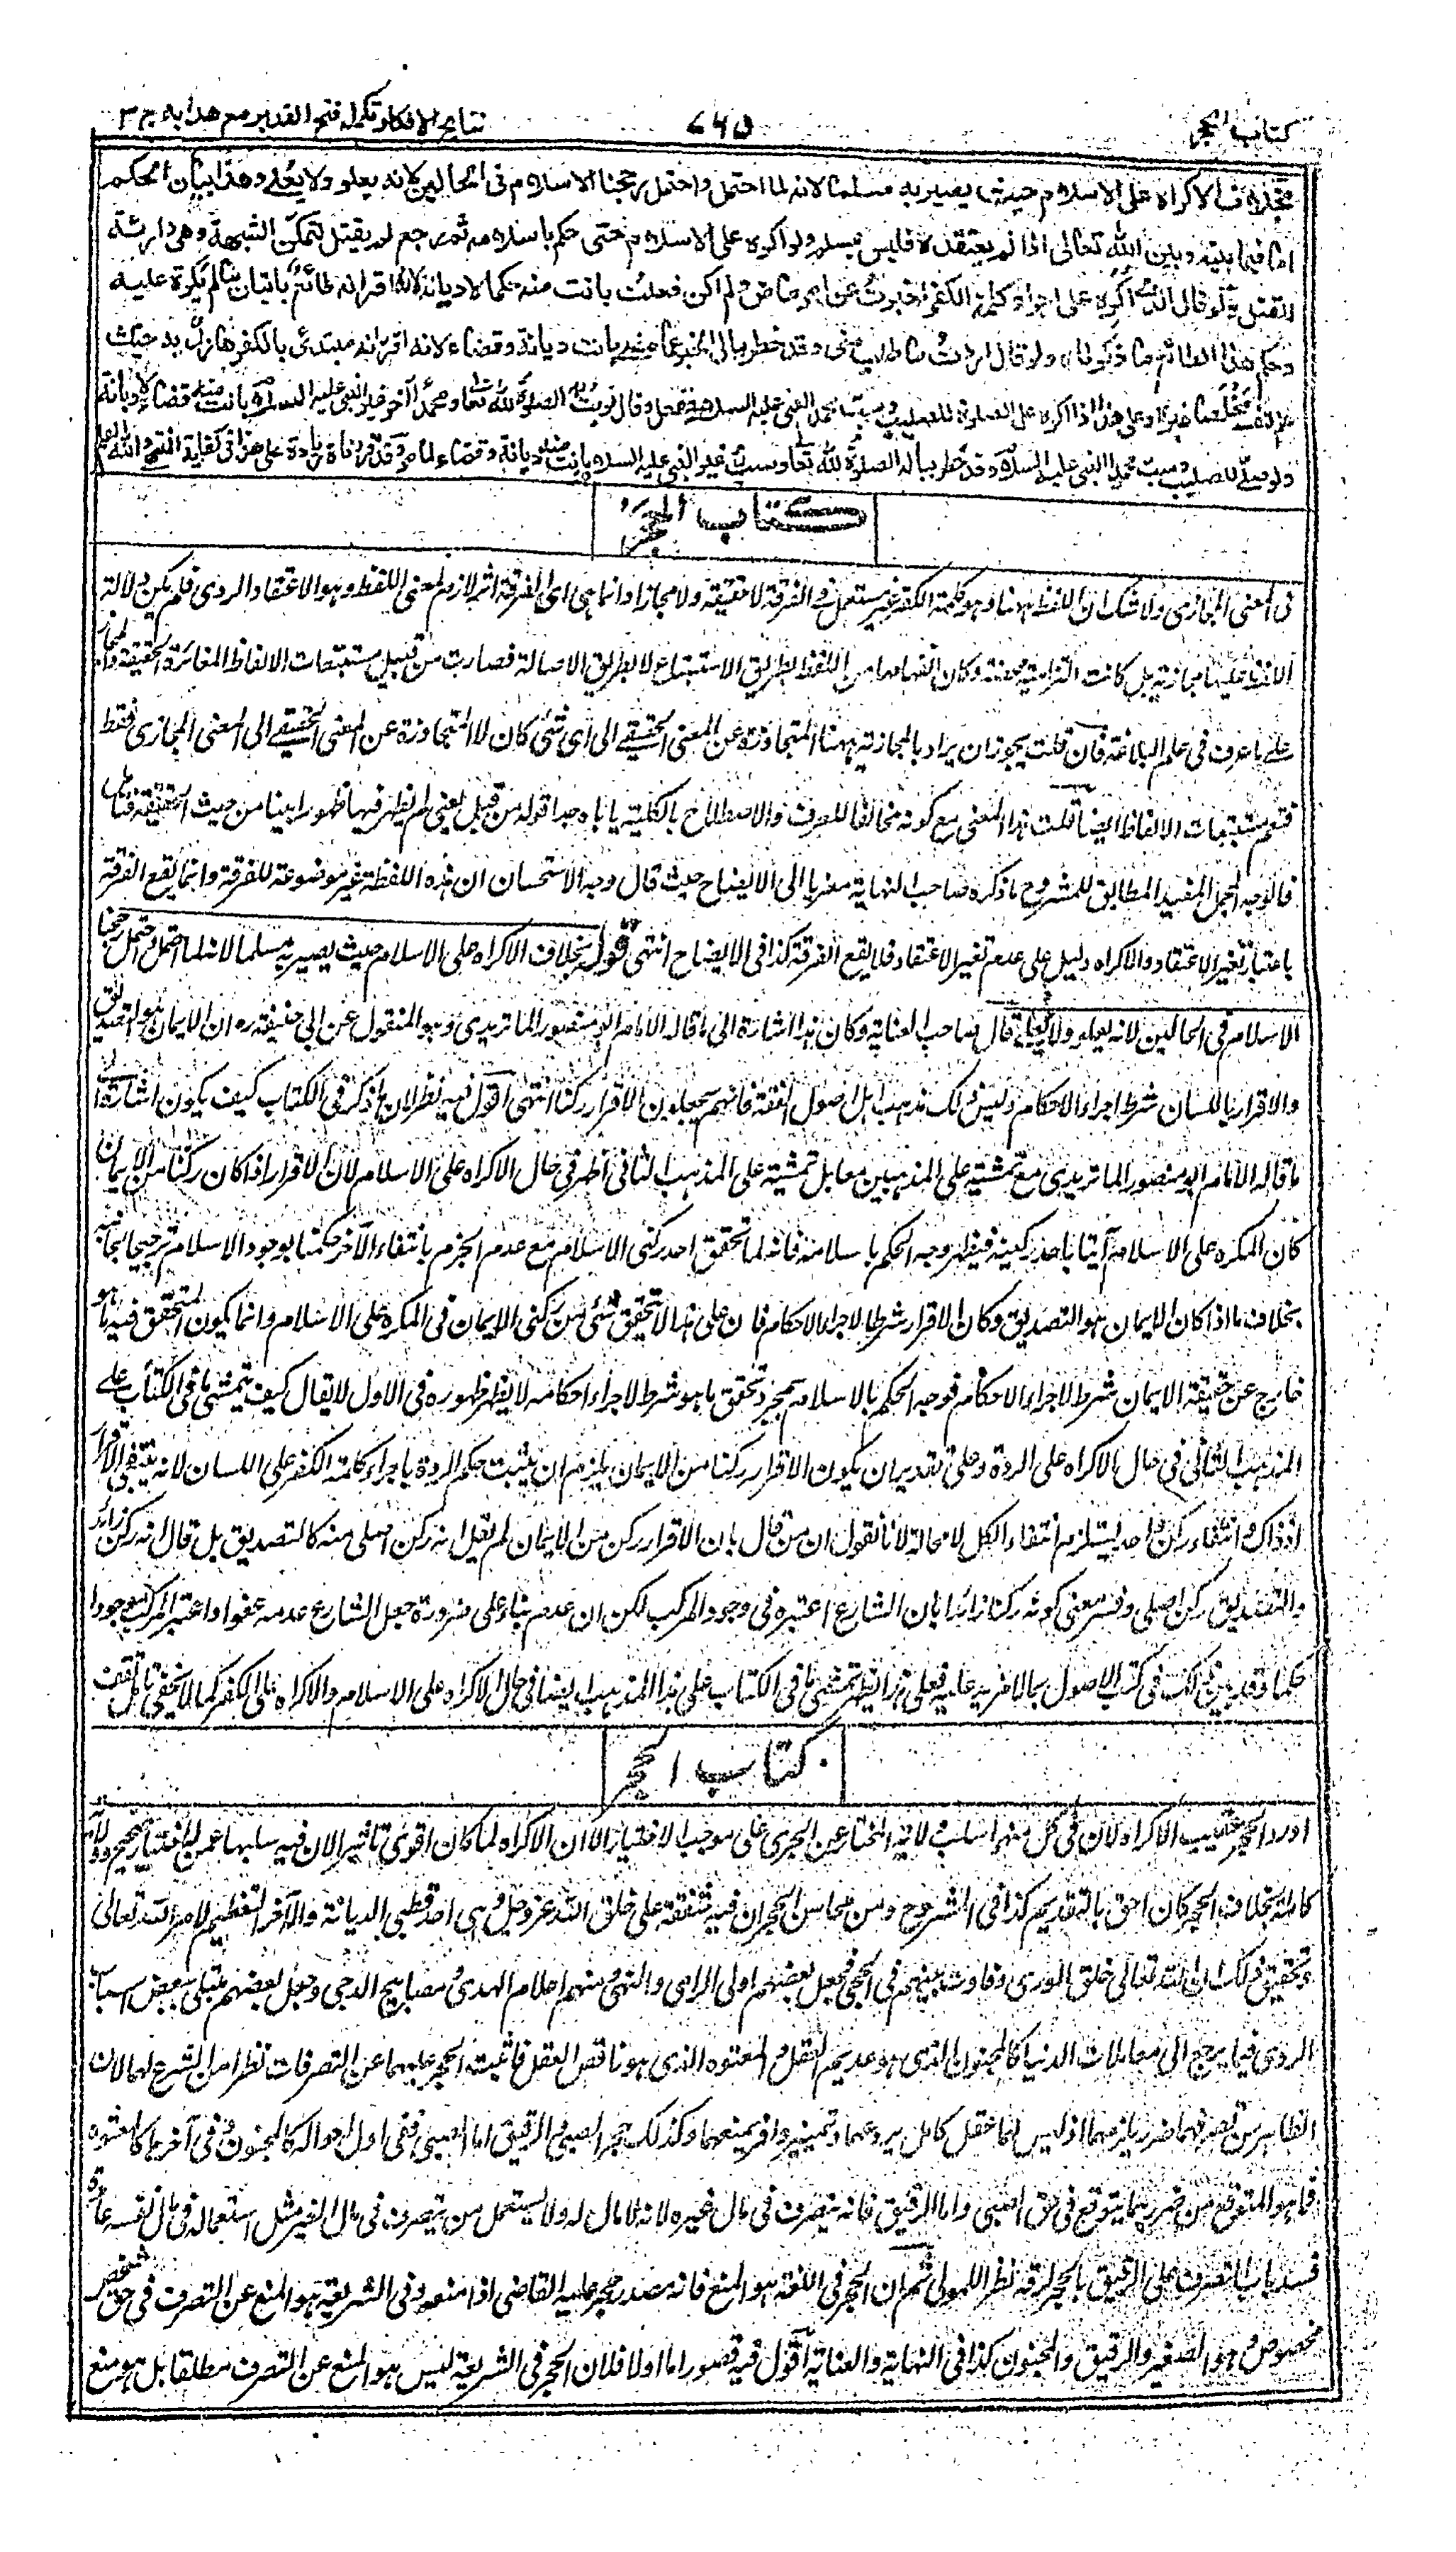 كتاب الحجر
٧٦٥
نتائج الافكار تكملة فتح القدير مع هداية ج ٣
بخلاف الاكراه على الاسلام حيث يصير به مسلما لانه لما احتمل واحتمل رجحنا الاسلام في الحالين لانه يعلو ولا يعلى وهذا بيان الحكم
اما فيما بينه وبين الله تعالى اذا لم يعتقده فليس بمسلم ولو اكره على الاسلام حتى حكم باسلامه ثم رجع لم يقتل لتمكن الشبهة وهي دارئة
للقتل ولو قال الذي اكره على اجراء كلمة الكفر اخبرت عن امر ماض ولم اكن فعلت بانت منه حكما لا ديانة لانه اقر انه طائع باتيان ما لم يكره عليه
وحكم هذا الطائع ما ذكرناه ولو قال اردت ما طلب مني وقد خطر ببالي الخبر عما مضى بانت ديانة وقضاء لانه اقر انه مبتدئ بالكفر هازل به حيث
علم لنفسه مخلصا غيره وعلى هذا اذا اكره على الصلوة للصليب وسب محمد النبي عليه السلام ففعل وقال نويت به الصلوة لله تعالى ومحمدا آخر غير النبي عليه السلام بانت منه قضاء لا ديانة
ولو صلى للصليب وسب محمدا النبي عليه السلام وقد خطر بباله الصلوة لله تعالى وسب غير النبي عليه السلام بانت منه ديانة وقضاء لما مر وقد قررناه زيادة على هذا في كفاية المنتهى والله اعلم
كتاب الحجر
في المعنى المجازي ولا شك ان اللفظ ههنا وهو كلمة الكفر غير مستعمل في الفرقة لا حقيقة ولا مجازا وانما هي اي الفرقة اثر لازم لمعنى اللفظ وهو الاعتقاد الردي فلم يكن دلالة
اللفظ عليها مجازية بل كانت التزامية محضة وكان انفهامها من اللفظ بطريق الاستتباع لا بطريق الاصالة فصارت من قبيل مستتبعات الالفاظ المغائرة للحقيقة والمجاز
على ما عرف في علم البلاغة فان قلت يجوز ان يراد بالمجازية ههنا المتجاوزة عن المعنى الحقيقي الى اي شئ كان لا المتجاوزة عن المعنى الحقيقي الى المعنى المجازي فقط
فتعم مستتبعات الالفاظ ايضا قلت هذا المعنى مع كونه مخالفا للعرف والاصطلاح بالكلية ياباه جدا قوله من قبل يعني لم يظهر فيها ظهورا بينا من حيث الحقيقة فتامل
فالوجه المجمل المفيد المطابق للمشروح ما ذكره صاحب النهاية معزيا الى الايضاح حيث قال وجه الاستحسان ان هذه اللفظة غير موضوعة للفرقة وانما يقع الفرقة
باعتبار تغير الاعتقاد والاكراه دليل على عدم تغير الاعتقاد فلا يقع الفرقة كذا في الايضاح انتهى قوله بخلاف الاكراه على الاسلام حيث يصير به مسلما لانه لما احتمل واحتمل رجحنا
الاسلام في الحالين لانه يعلو ولا يعلى قال صاحب العناية وكان هذا اشارة الى ما قاله الامام ابو منصور الماتريدي وهو المنقول عن ابي حنيفة ره ان الايمان هو التصديق
والاقرار باللسان شرط اجراء الاحكام وليس ذلك مذهب اهل اصول الفقه فانهم يجعلون الاقرار ركنا انتهى اقول فيه نظر لان ما ذكر في الكتاب كيف يكون اشارة الى
ما قاله الامام ابو منصور الماتريدي مع تمشيته على المذهبين معا بل تمشيته على المذهب الثاني اظهر في حال الاكراه على الاسلام لان الاقرار اذا كان ركنا من الايمان
كان المكره على الاسلام آتيا باحد ركنيه فيظهر وجه الحكم باسلامه فانه لما تحقق احد ركني الاسلام مع عدم الجزم بانتفاء الآخر حكمنا بوجود الاسلام ترجيحا لجانبه
بخلاف ما اذا كان الايمان هو التصديق وكان الاقرار شرطا لاجراء الاحكام فان على هذا لا تحقق شئ من ركني الايمان في المكره على الاسلام وانما يكون المتحقق فيه ما هو
خارج عن حقيقة الايمان شرط لاجراء الاحكام فوجه الحكم بالاسلام بمجرد تحقق ما هو شرط لاجراء احكامه لا يظهر ظهوره في الاول لا يقال كيف يتمشى ما في الكتاب على
المذهب الثاني في حال الاكراه على الردة وعلى تقدير ان يكون الاقرار ركنا من الايمان يلزم ان يثبت حكم الردة باجراء كلمة الكفر على اللسان لانه ينتفي الاقرار
اذ ذاك وانتفاء ركن واحد يستلزم انتفاء الكل لا محالة لانا نقول ان من قال بان الاقرار ركن من الايمان لم يقل انه ركن اصلي منه كالتصديق بل قال انه ركن زائد
والتصديق ركن اصلي وفسر معنى كونه ركنا زائدا بان الشارع اعتبره في وجود المركب لكن ان عدم بناء على ضرورة جعل الشارع عدمه عفوا واعتبر المركب موجودا
حكما وقد بين ذلك في كتب الاصول بما لا مزيد عليه فعلى هذا يظهر تمشي ما في الكتاب على هذا المذهب ايضا في حال الاكراه على الاسلام والاكراه على الكفر كما لا يخفى تامل تقف
كتاب الحجر
اورد الحجر عقيب الاكراه لان في كل منهما سلب ولاية المختار عن الجري على موجب الاختيار الا ان الاكراه لما كان اقوى تاثيرا لان فيه سلبها عمن له اختيار صحيح وولاية
كاملة بخلاف الحجر كان احق بالتقديم كذا في الشروح ومن محاسن الحجر ان فيه شفقة على خلق الله عز وجل وهي احد قطبي الديانة والآخر التعظيم لامر الله تعالى
وتحقيق ذلك ان الله تعالى خلق الورى وفاوت بينهم في الحجى فجعل بعضهم اولي الراى والنهى ومنهم اعلام الهدى ومصابيح الدجى وجعل بعضهم مبتلى ببعض اسباب
الردى فيما يرجع الى معاملات الدنيا كالمجنون الذي هو عديم العقل والمعتوه الذي هو ناقص العقل فاثبت الحجر عليهما عن التصرفات نظرا من الشرع لهما لان
الظاهر من تصرفهما ضرر يلزمهما اذ ليس لهما عقل كامل يردعهما وتمييز وافر يمنعهما وكذلك حجر الصبي والرقيق اما الصبي ففي اول احواله كالمجنون وفي آخرها كالمعتوه
فما هو المتوقع من ضررهما يتوقع في حق الصبي واما الرقيق فانه يتصرف في مال غيره لانه لا مال له ولا يستعمل من يتصرف في مال الغير مثل استعماله في مال نفسه عادة
فسد باب التصرف على الرقيق بالحجر لرقه نظرا للمولى ثم ان الحجر في اللغة هو المنع فانه مصدر حجر عليه القاضي اذا منعه وفي الشريعة هو المنع عن التصرف في حق شخص
مخصوص وهو الصغير والرقيق والمجنون كذا في النهاية والعناية اقول فيه قصور اما اولا فلان الحجر في الشريعة ليس هو المنع عن التصرف مطلقا بل هو منع